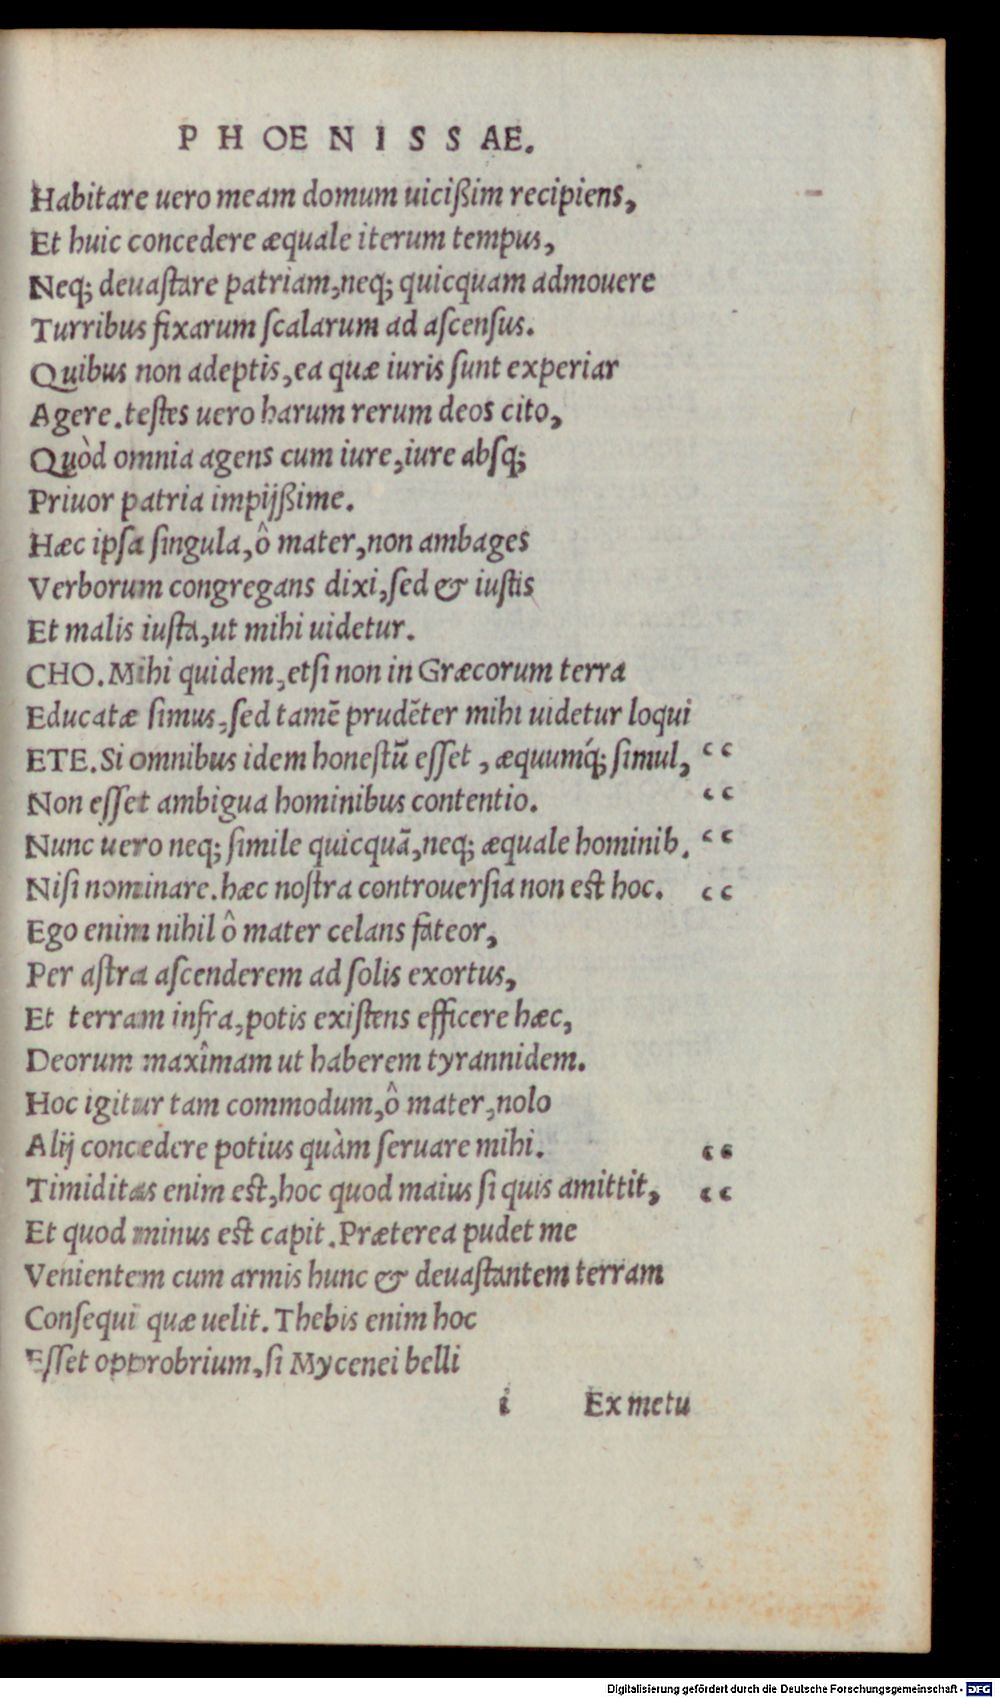 PHOENISSAE.
Habitare uero meam domum uicißim recipiens,
Et huic concedere æquale iterum tempus,
Neq; deuaſtare patriam, neq; quicquam admouere
Turribus fixarum ſcalarum ad aſcenſus.
Quibus non adeptis, ea quæ iuris ſunt experiar
Agere. teſtes uero harum rerum deos cito,
Quòd omnia agens cum iure, iure abſq;
Priuor patria impijßime.
Hæc ipſa ſingula, ô mater, non ambages
Verborum congregans dixi, ſed & iuſtis
Et malis iuſta, ut mihi uidetur.
CHO. Mihi quidem, etſi non in Græcorum terra
Educatæ ſimus, ſed tamē prudēter mihi uidetur loqui
ETE. Si omnibus idem honeſtū eſſet, æquumq́; ſimul, “
Non eſſet ambigua hominibus contentio. “
Nunc uero neq; ſimile quicquā, neq; æquale hominib. “
Niſi nominare. hæc noſtra controuerſia non est hoc. “
Ego enim nihil ô mater celans fateor,
Per aſtra aſcenderem ad ſolis exortus,
Et terram infra, potis exiſtens efficere hæc,
Deorum maximam ut haberem tyrannidem.
Hoc igitur tam commodum, ô mater, nolo
Alij concedere potius quàm ſeruare mihi. “
Timiditas enim est, hoc quod maius ſi quis amittit, “
Et quod minus est capit. Præterea pudet me
Venientem cum armis hunc & deuaſtantem terram
Conſequi quæ uelit. Thebis enim hoc
Eſſet opprobrium, ſi Mycenei belli
i Ex metu
Digitalisierung gefördert durch die Deutsche Forschungsgemeinschaft - DFG